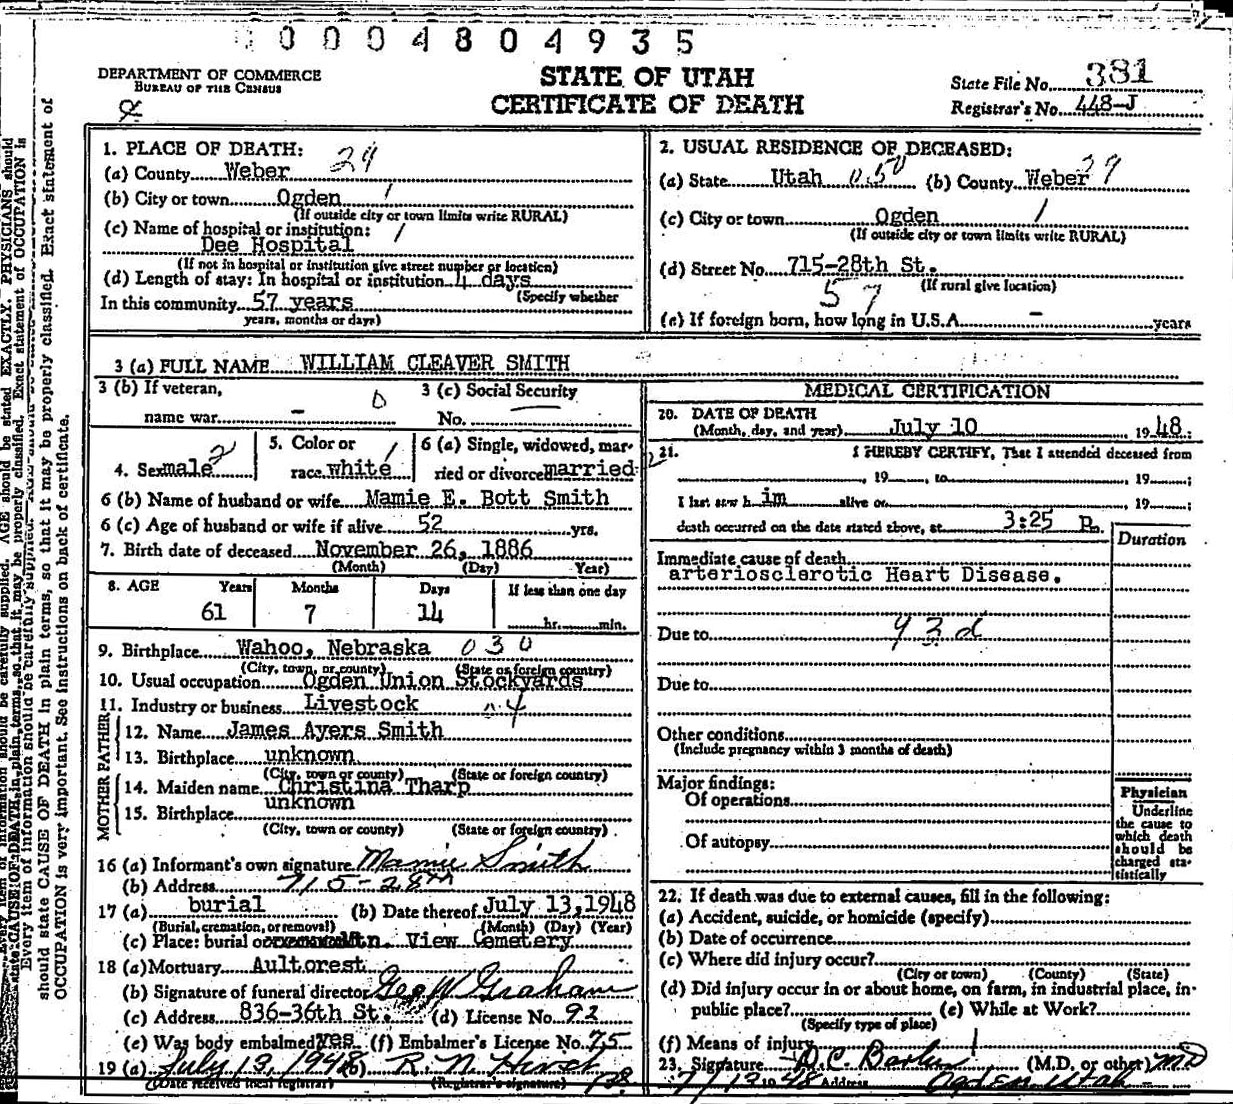 0 0 0 4 8 0 4 9 3 5
DEPARTMENT OF COMMERCE
BUREAU OF THE CENSUS
STATE OF UTAH
CERTIFICATE OF DEATH
State File No. 381
Registrar's No. 448-J
1. PLACE OF DEATH: 29
(a) County Weber
(b) City or town Ogden 1
(If outside city or town limits write RURAL)
(c) Name of hospital or institution: 1
Dee Hospital
(If not in hospital or institution give street number or location)
(d) Length of stay: In hospital or institution 4 days
(Specify whether
In this community 57 years
years, months or days)
2. USUAL RESIDENCE OF DECEASED:
(a) State Utah 0.50 (b) County Weber 29
(c) City or town Ogden 1
(If outside city or town limits write RURAL)
(d) Street No. 715-28th St.
(If rural give location)
57
(e) If foreign born, how long in U.S.A. - years
3 (a) FULL NAME WILLIAM CLEAVER SMITH
3 (b) If veteran,
name war - 0
3 (c) Social Security
No. —
4. Sex male 2
5. Color or
race white 1
6 (a) Single, widowed, mar-
ried or divorced married
6 (b) Name of husband or wife Mamie E. Bott Smith
6 (c) Age of husband or wife if alive 52 yrs.
7. Birth date of deceased November 26, 1886
(Month) (Day) Year)
8. AGE Years Months Days If less than one day
61 7 14 hr. min.
9. Birthplace Wahoo, Nebraska 030
(City, town, or county) (State or foreign country)
10. Usual occupation Ogden Union Stockyards
11. Industry or business Livestock
FATHER
12. Name James Ayers Smith
13. Birthplace unknown
(City, town or county) (State or foreign country)
MOTHER
14. Maiden name Christina Tharp
15. Birthplace unknown
(City, town or county) (State or foreign country)
16 (a) Informant's own signature Mamie Smith
(b) Address 715-28th
17 (a) burial (b) Date thereof July 13, 1948
(Burial, cremation, or removal) (Month) (Day) (Year)
(c) Place: burial or Mtn. View Cemetery
18 (a) Mortuary Aultorest
(b) Signature of funeral director Geo W Graham
(c) Address 836-36th St. (d) License No. 92
(e) Was body embalmed yes (f) Embalmer's License No. 75
19 (a) July 13, 1948 (b) R. N. Hirst
(Date received local registrar) (Registrar's signature)
MEDICAL CERTIFICATION
20. DATE OF DEATH
(Month, day, and year) July 10, 1948;
21. I HEREBY CERTIFY, That I attended deceased from
, 19 , to , 19 ;
I last saw h im alive on , 19 ;
death occurred on the date stated above, at 3:25 P.
Duration
Immediate cause of death
arteriosclerotic Heart Disease.
93d
Due to
Due to
Other conditions
(Include pregnancy within 3 months of death)
Major findings:
Of operations
Of autopsy
Physician
Underline
the cause to
which death
should be
charged sta-
tistically
22. If death was due to external causes, fill in the following:
(a) Accident, suicide, or homicide (specify)
(b) Date of occurrence
(c) Where did injury occur?
(City or town) (County) (State)
(d) Did injury occur in or about home, on farm, in industrial place, in
public place? (e) While at Work?
(Specify type of place)
(f) Means of injury
23. Signature (M.D. or other) MD
7/13 19 48 Address Ogden, Utah
should state CAUSE OF DEATH in plain terms, so that it may be properly classified. Exact statement of
OCCUPATION is very important. See instructions on back of certificate.